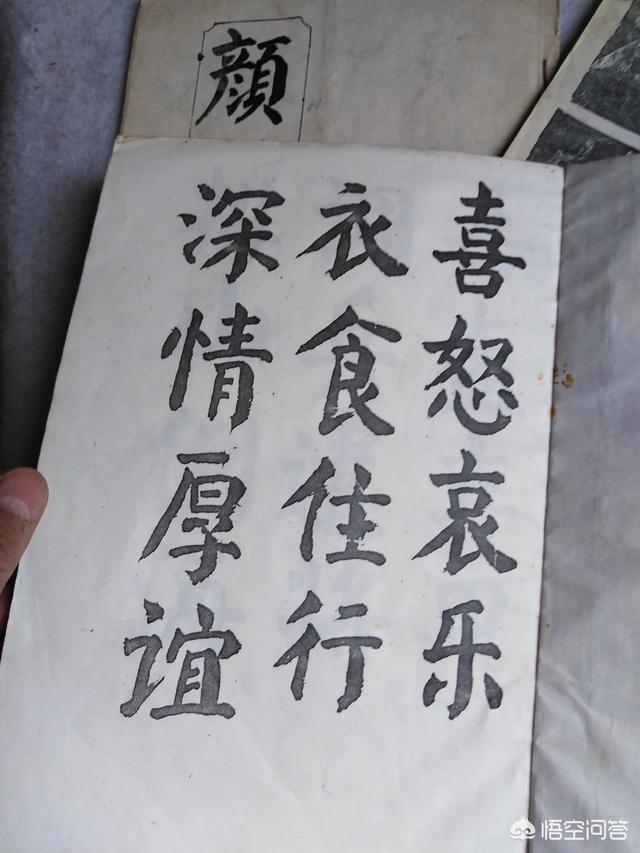 顔
喜怒哀乐
衣食住行
深情厚谊
悟空问答